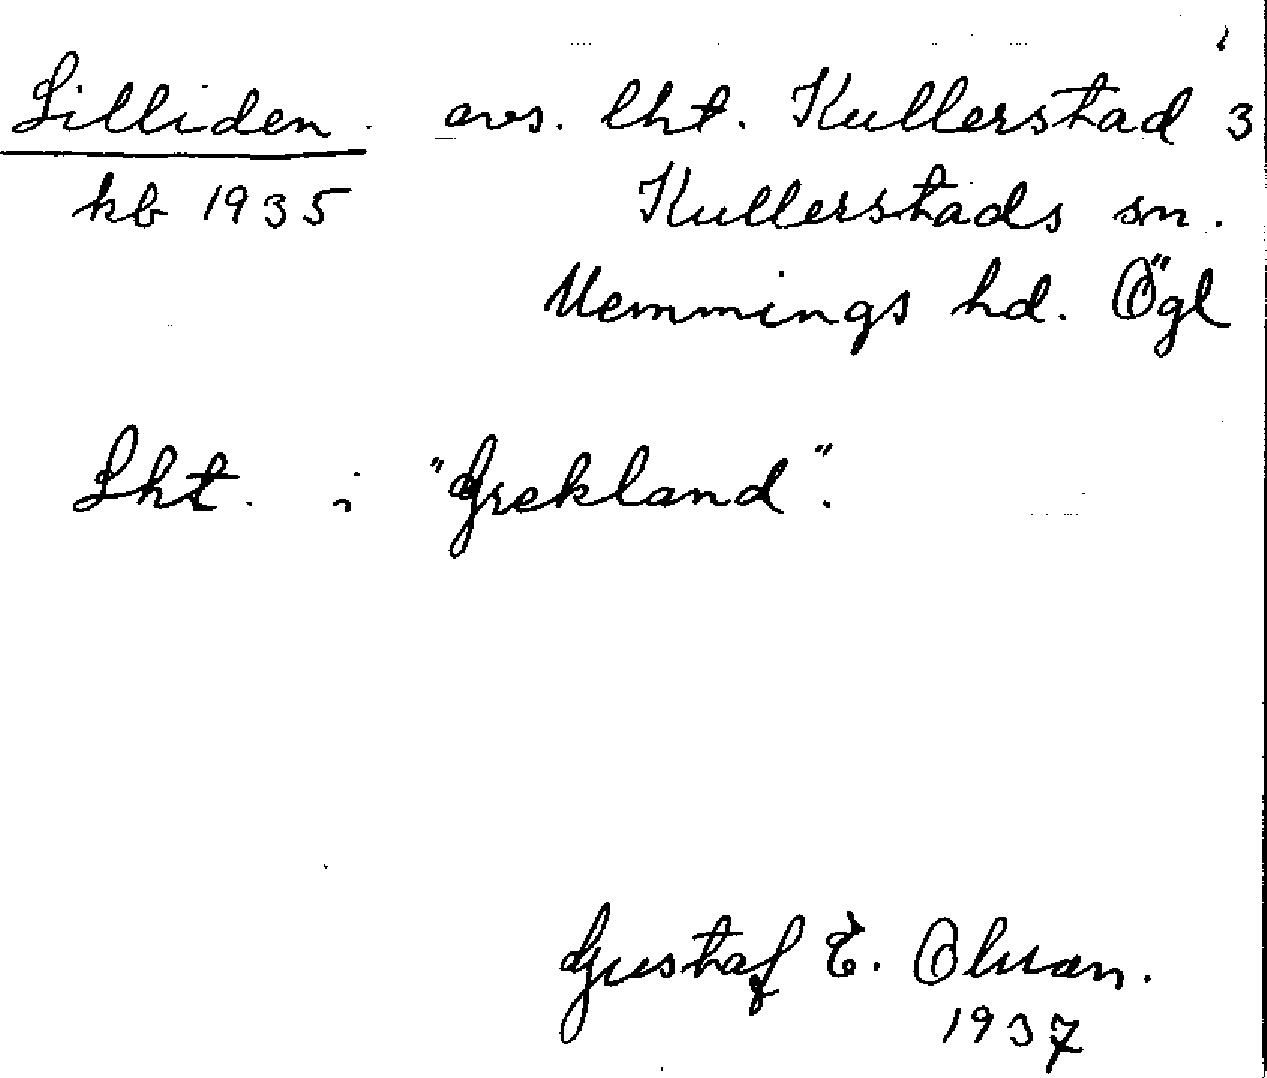 Lilliden avs. lht. Kullerstad 3
kb 1935 Kullerstads sn.
Memmings hd. Ögl
Lht. i "Grekland".
Gustaf E. Olsson.
1937